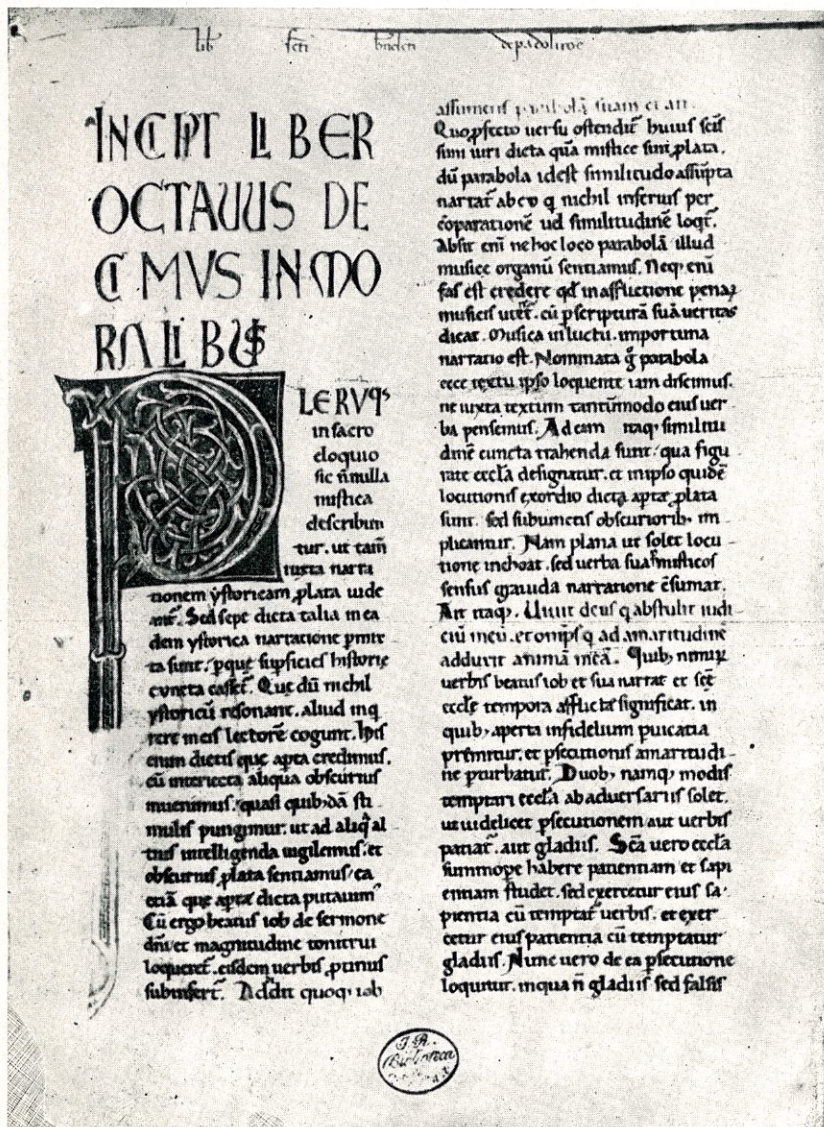 lib sc̄ti b̄nedicti de padolirōe
INCIPIT LIBER
OCTAVUS DE
CIMVS IN MO
RALIBUS
PLERVQꝫ
in sacro
eloquio
sic n̄nulla
mistica
describun
tur. ut tam̄
iuxta narra
tionem ẏstoricam ꝓlata uide
ant᷑. Sed sepe dicta talia in ea
dem ẏstorica narratione ꝑmix
ta sunt. ꝑque suꝑficies historię
cuncta casset᷑. Que dū nichil
ẏstoricū resonant. aliud inq
rere in eis lectorē cogunt. Hijs
enim dictis que apta credimus.
cū interiecta aliqua obscurius
inuenimus. quasi quibꝫdā sti
mulis pungimur. ut ad aliq̄ al
tius intelligenda uigilemus. et
obscurius ꝓlata sentiamus ea
etiā que apte dicta putauim᷒
Cū ergo beatus iob de sermone
dn̄i et magnitudine tonitrui
loqueret᷑. eisdem uerbis ꝓtinus
subinfert᷑. Addit quoqꝫ iob
assumens parabolā suam et ait.
Quo ꝓfecto uersu ostendit᷑ huius scīs
simi uiri dicta quā mistice sint ꝓlata.
dū parabola idest similitudo assūpta
narrat᷑ ab eo q nichil inferius per
cōparationē ud similitudinē loqt᷑.
Absit eni ne hoc loco parabolā illud
musicę organū sentiamus. Neqꝫ eni
fas est credere qd̄ in afflictione penaꝝ
musicis utet᷑. cū ꝑ scripturā suā ueritas
dicat. Musica in luctu. importuna
narratio est. Nominata g̊ parabola
ecce textu ipso loquente iam discimus.
ne iuxta textum tantūmodo eius uer
ba pensemus. Ad eam itaqꝫ similitu
dinē cuncta trahenda sunt. qua figu
rate eccl̄a designatur. et in ipso quidē
locutionis exordio dicta apte ꝓlata
sunt. sed subinectis obscurioribꝫ im
plicantur. Nam plana ut solet locu
tione inchoat. sed uerba sua ꝑ misticos
sensus grauida narratione c̄sumat.
Ait itaqꝫ. Uiuit deus q abstulit iudi
ciū meū. et omīps q ad amaritudinē
adduxit animā meā. Quibꝫ nimiꝝ
uerbis beatus iob et sua narrat et scē
ecclē tempora afflictę significat. in
quibꝫ aperta infidelium puicatia
premitur. et ꝑsecutionis amaritudi
ne ꝑturbatur. Duobꝫ namqꝫ modis
temptari eccl̄a ab aduersariis solet.
ut uidelicet ꝑsecutionem aut uerbis
patiat᷑. aut gladiis. Scā uero eccl̄a
summope habere patientiam et sapi
entiam studet. sed exercetur eius sa
pientia cū temptat᷑ uerbis. et exer
cetur eius patientia cū temptatur
gladiis. Nunc uero de ea ꝑsecutione
loquitur. in qua n̄ gladiis sed falsis
Biblioteca